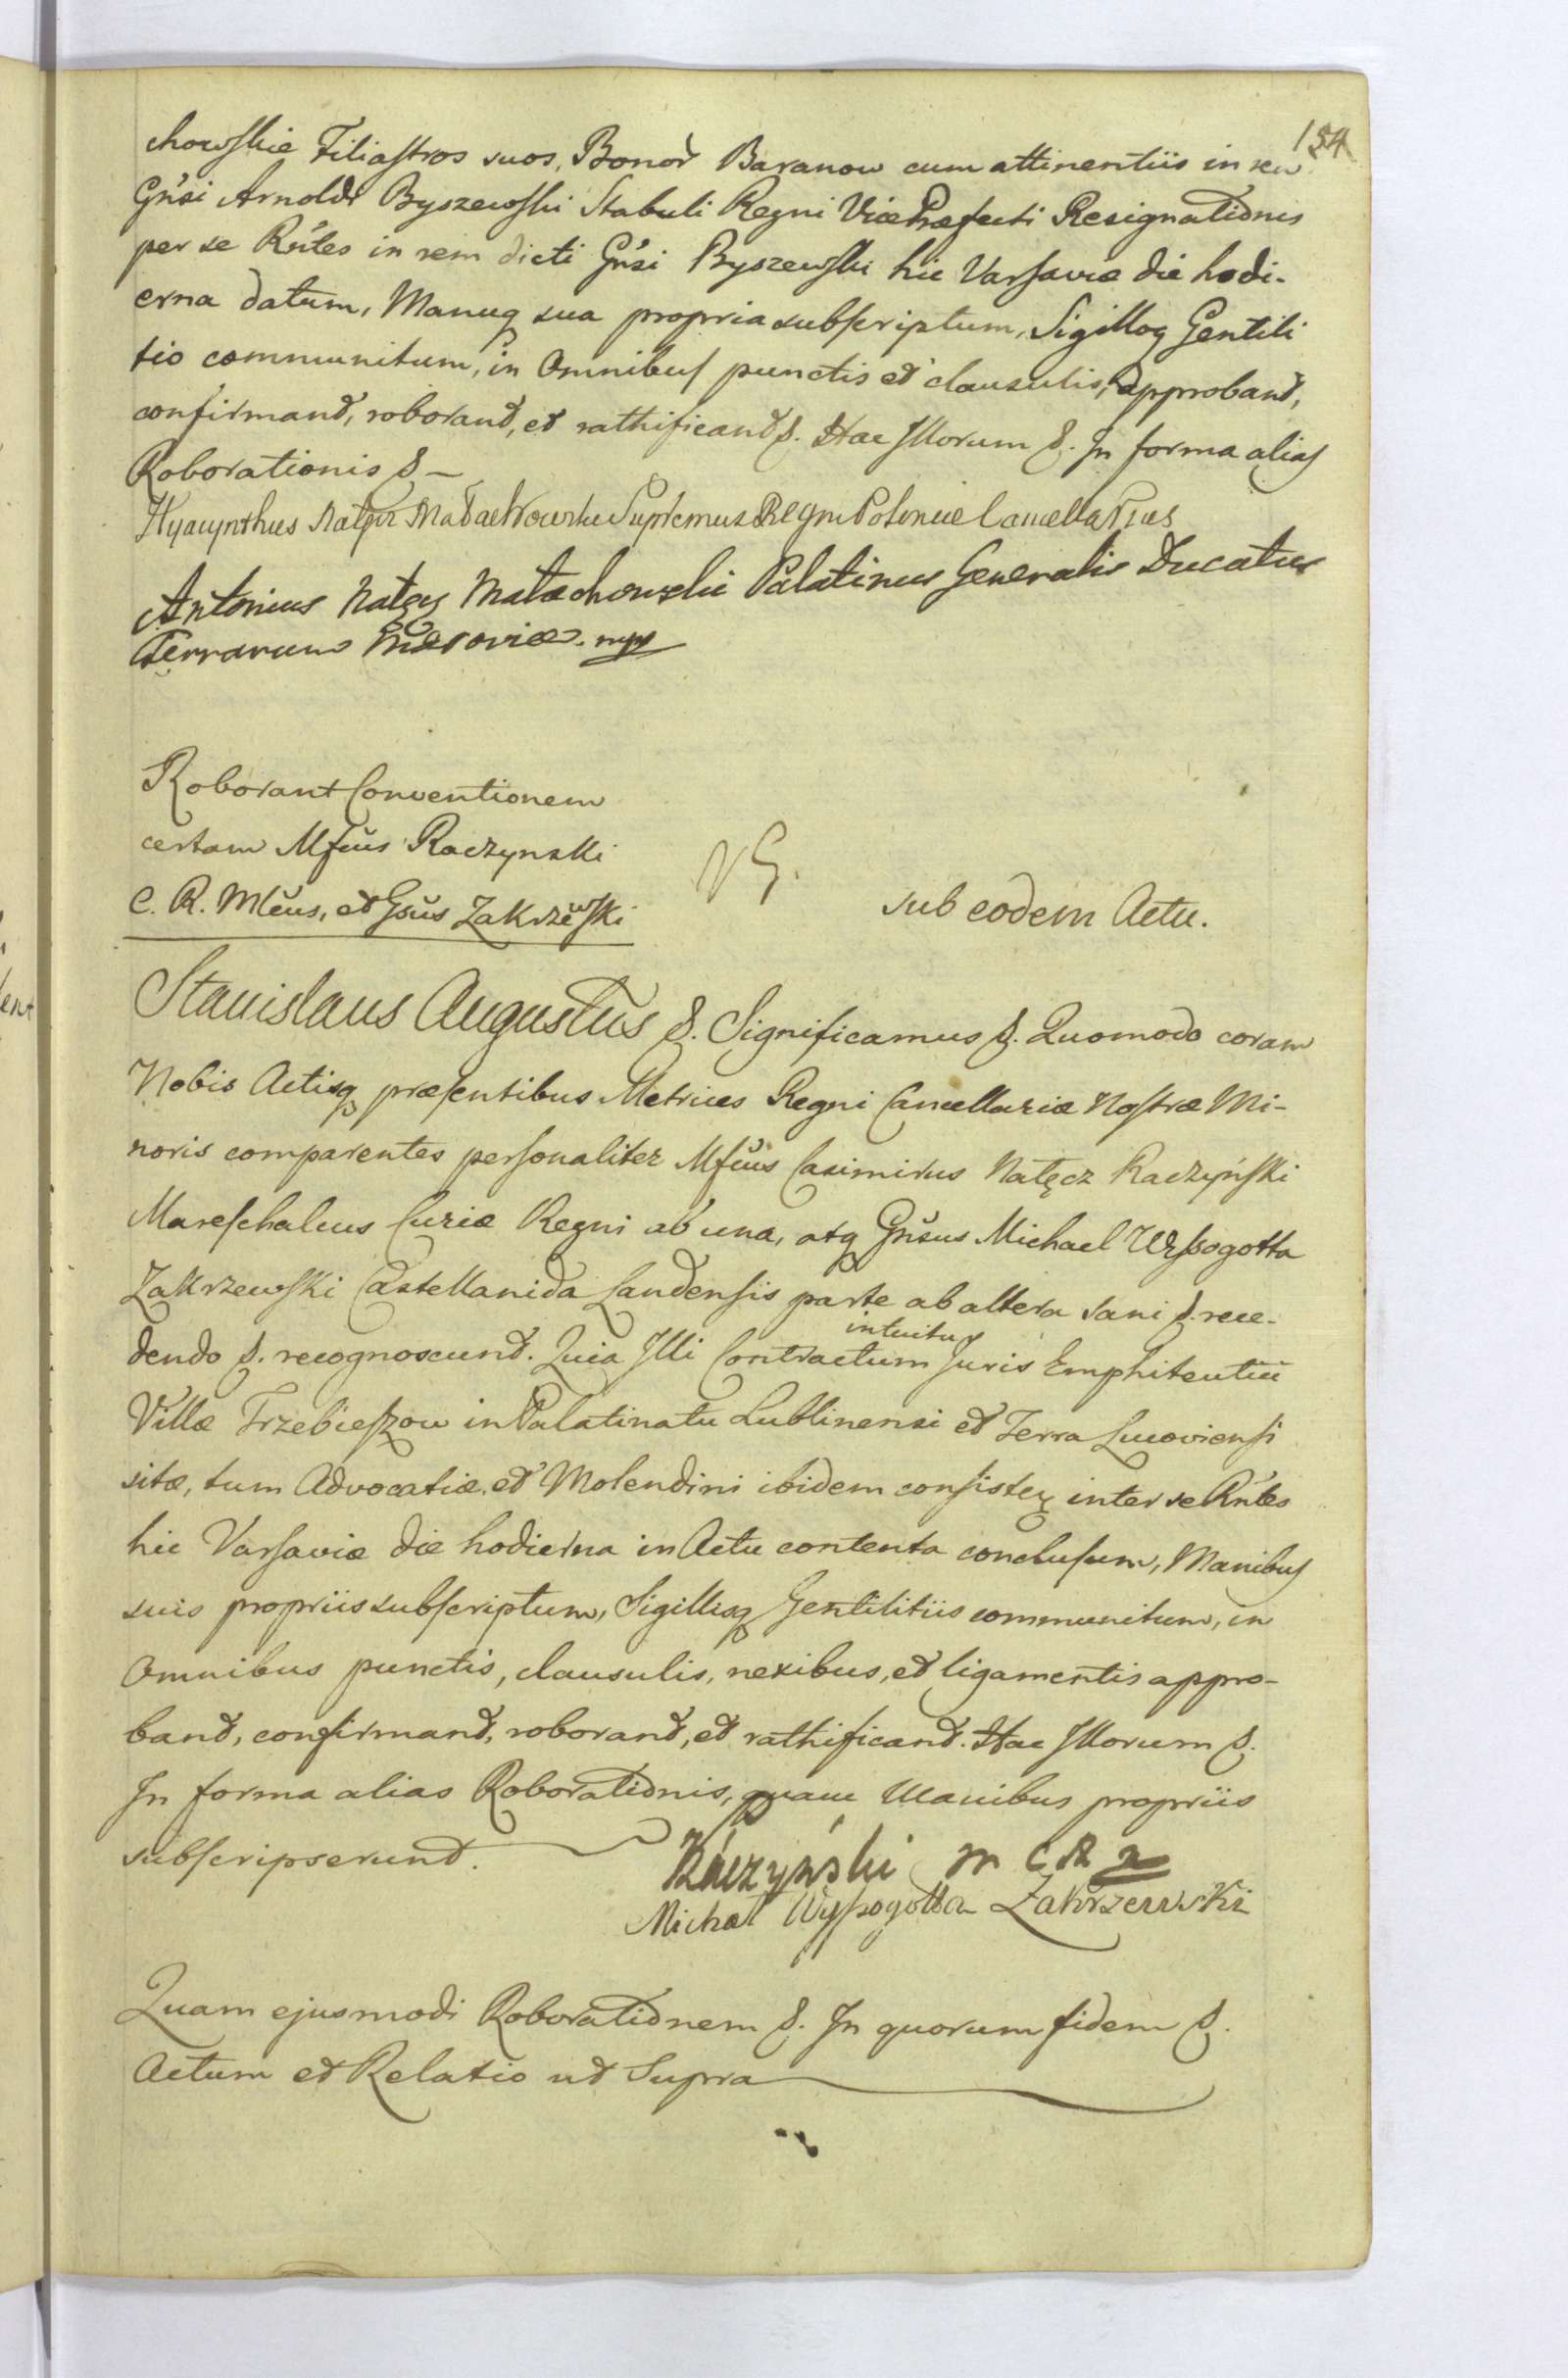 154
chowskie Filiastros suos, Bonor Baranow cum attinentiis in rem
Gnsi Arnoldi Byszewski Stabuli Regni Vice Præfecti Resignationis
per se Rntes in rem dicti Gnsi Byszewski hic Varsaviæ die hodi-
erna datum, Manuq sua propria subscriptum, Sigilloq Gentili
tio communitum, in Omnibus punctis et clausulis, approband,
confirmand, roborand, et rathificand &. Hac Illorum &. In forma alias
Roborationis & –
Hyacynthus Nałęcz Małachowski Supremus Regni Poloniæ Cancellarius
Antonius Nałęcz Małachowski Palatinus Generalis Ducatus
Terrarum Masoviæ. mp
Roborant Conventionem
certam Mfcus Raczynski
C. R. Mlcus, et Gsus Zakrzewski
NG.
sub eodem Actu.
Stanislaus Augustus &. Significamus &. Quomodo coram
Nobis Actisq præsentibus Metrices Regni Cancellariæ Nostræ Mi-
noris comparentes personaliter Mfcus Casimirus Nałęcz Raczyński
Mareschalcus Curiæ Regni ab una, atq Gnsus Michael Wyssogotta
Zakrzewski Castellanida Landensis parte ab altera sani &. rece-
dendo &. recognoscund. Quia Illi Contractum intuitu Juris Emphiteutici
Villæ Trzebieszow in Palatinatu Lublinensi et Terra Lucoviensi
sitæ, tum Advocatiæ et Molendini ibidem consisten inter se Rntes
hic Varsaviæ die hodierna in Actu contenta conclusum, Manibus
suis propriis subscriptum, Sigillisq Gentilitiis communitum, in
Omnibus punctis, clausulis, nexibus, et ligamentis appro-
band, confirmand, roborand, et rathificand. Hac Illorum &.
In forma alias Roborationis, quam Manibus propriis
subscripserund.
Raczyński M C R
Michał Wyssogotta Zakrzewski
Quam ejusmodi Roborationem &. In quorum fidem &.
Actum et Relatio ut Supra